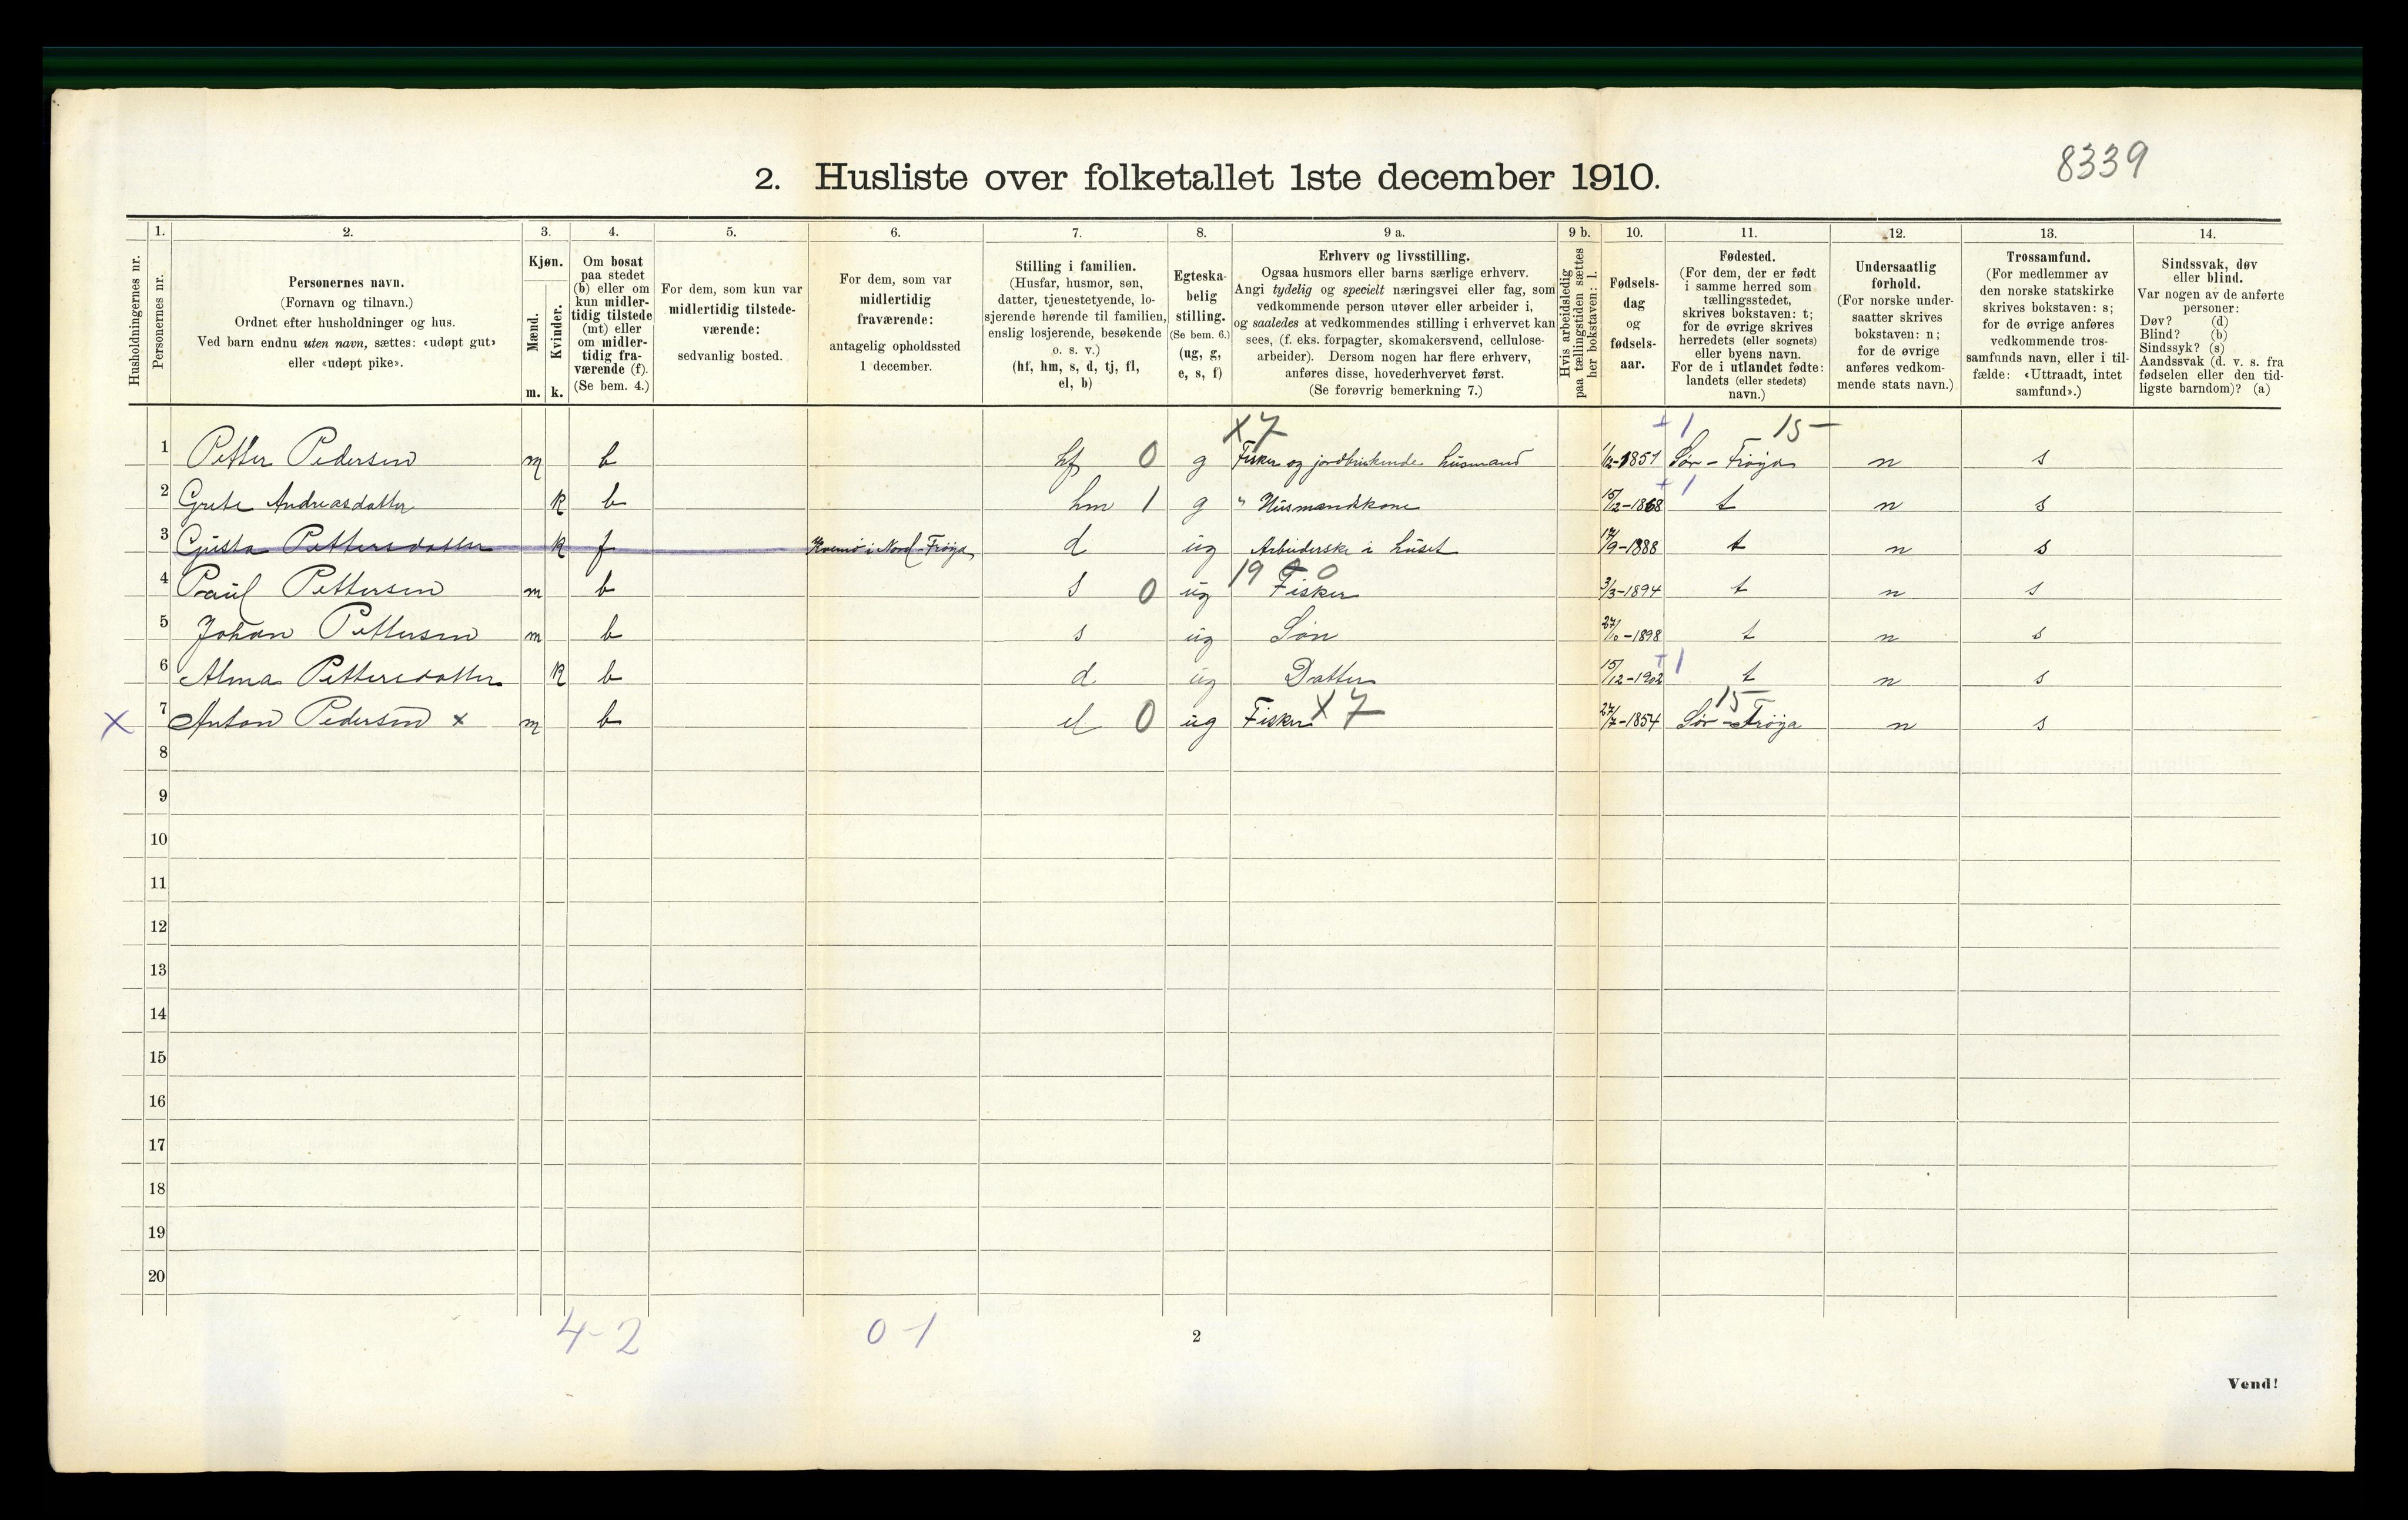 8339
2. Husliste over folketallet 1ste december 1910.
Husholdningernes nr.
1.
Personernes nr.
2.
Personernes navn.
(Fornavn og tilnavn.)
Ordnet efter husholdninger og hus.
Ved barn endnu uten navn, sættes: «udøpt gut»
eller «udøpt pike».
3.
Kjøn.
Mænd.
Kvinder.
m. k.
4.
Om bosat
paa stedet
(b) eller om
kun midler-
tidig tilstede
(mt) eller
om midler-
tidig fra-
værende (f).
(Se bem. 4.)
5.
For dem, som kun var
midlertidig tilstede-
værende:
sedvanlig bosted.
6.
For dem, som var
midlertidig
fraværende:
antagelig opholdssted
1 december.
7.
Stilling i familien.
(Husfar, husmor, søn,
datter, tjenestetyende, lo-
sjerende hørende til familien,
enslig losjerende, besøkende
o. s. v.)
(hf, hm, s, d, tj, fl,
el, b)
8.
Egteska-
belig
stilling.
(Se bem. 6.)
(ug, g,
e, s, f)
9 a.
Erhverv og livsstilling.
Ogsaa husmors eller barns særlige erhverv.
Angi tydelig og specielt næringsvei eller fag, som
vedkommende person utøver eller arbeider i,
og saaledes at vedkommendes stilling i erhvervet kan
sees, (f. eks. forpagter, skomakersvend, cellulose-
arbeider). Dersom nogen har flere erhverv,
anføres disse, hovederhvervet først.
(Se forøvrig bemerkning 7.)
9 b.
Hvis arbeidsledig
paa tællingstiden sættes
her bokstaven: l.
10.
Fødsels-
dag
og
fødsels-
aar.
11.
Fødested.
(For dem, der er født
i samme herred som
tællingsstedet,
skrives bokstaven: t;
for de øvrige skrives
herredets (eller sognets)
eller byens navn.
For de i utlandet fødte:
landets (eller stedets)
navn.)
12.
Undersaatlig
forhold.
(For norske under-
saatter skrives
bokstaven: n;
for de øvrige
anføres vedkom-
mende stats navn.)
13.
Trossamfund.
(For medlemmer av
den norske statskirke
skrives bokstaven: s;
for de øvrige anføres
vedkommende tros-
samfunds navn, eller i til-
fælde: «Uttraadt, intet
samfund».)
14.
Sindssvak, døv
eller blind.
Var nogen av de anførte
personer:
Døv? (d)
Blind? (b)
Sindssyk? (s)
Aandssvak (d. v. s. fra
fødselen eller den tid-
ligste barndom)? (a)
X 7 +1 15 -
1 Petter Pedersen m b hf 0 g Fisker og jordbrukende husmand 1/12-1851 Sør-Frøya n s
+1
2 Grete Andreasdatter k b hm 1 g " Husmandskone 15/12-1868 t n s
3 Gusta Pettersdatter k f i Nord-Frøya d ug Arbeiderske i huset 17/9-1888 t n s
19 0 0
4 Paul Pettersen m b s 0 ug Fisker 3/3-1894 t n s
5 Johan Pettersen m b s ug Søn 27/10-1898 t n s
+1
6 Alma Pettersdatter k b d ug Datter 15/12-1902 t n s
15 -
X 7 Anton Pedersen x m b el 0 ug Fisker X 7 27/7-1854 Sør-Frøya n s
8
9
10
11
12
13
14
15
16
17
18
19
20
4-2 0-1
2
Vend!